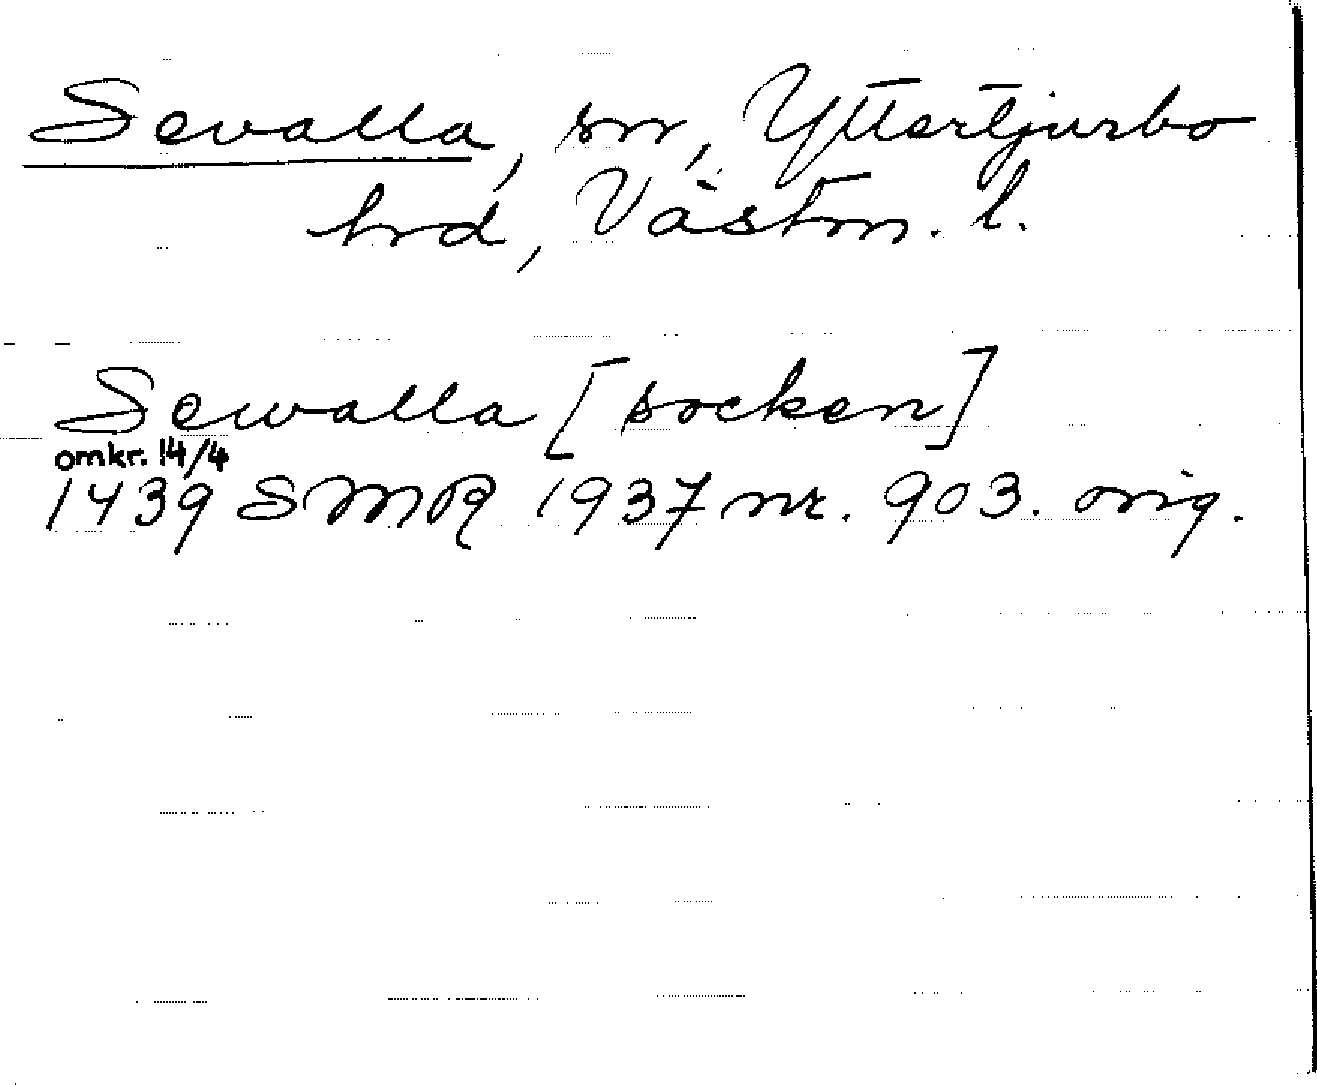 Sevalla, sn, Yttertjurbo
hrd, Västm. l.
Sewalla [socken]
omkr. 14/4
1439 SMR 1937 nr. 903. orig.